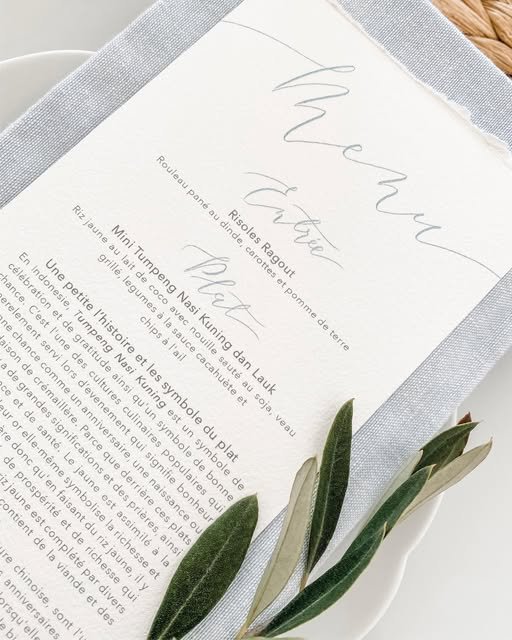 Menu
Entrée
Risoles Ragout
Rouleau pané au dinde, carottes et pomme de terre
Plat
Mini Tumpeng Nasi Kuning dan Lauk
Riz jaune au lait de coco avec nouille sauté au soja, veau
grillé, legumes à la sauce cacahuète et
chips à l'ail
Une petite l'histoire et les symbole du plat
En Indonesie, Tumpeng Nasi Kuning est un symbole de
célébration et de gratitude ainsi qu'un symbole de bonne
chance. C'est l'une des cultures culinaires populaires qui
servi lors d'évenement qui signifie bonheur
une chance comme un anniversaire, une naissance ou
maison de crémaillère. Parce que derrière ces plats
a de grandes significations et des prières, ainsi
et de santé. Le jaune est assimilé à la
or elle même symbolise la richesse
donc qu'en faisant du riz jaune, il y
de prospérité et de richesse qui
riz jaune est complété par divers
contient de la viande et des
chinoise, sont l'u
anniversaires
lorsqu'elle